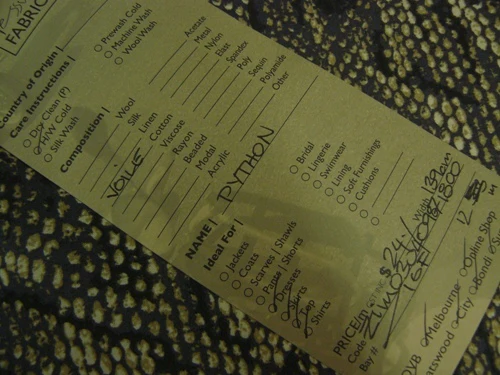 FABRIC
Country of Origin |
Care Instructions |
Dry Clean (P)
H/W Cold
Silk Wash
Prewash Cold
Machine Wash
Wool Wash
Composition |
Wool
Silk
Linen
Cotton
Viscose
Rayon
Beaded
Modal
Acrylic
VOILE
Acetate
Metal
Nylon
Elast
Spandex
Poly
Sequin
Polyamide
Other
NAME | PYTHON
Ideal For |
Jackets
Coats
Scarves | Shawls
Pants | Shorts
Dresses
Skirts
Top
Shirts
Bridal
Lingerie
Swimwear
Lining
Soft Furnishings
Cushions
PRICE/m $24
Width 139cm
Code
Bay #
Melbourne
Optime Shop
City
Bondi